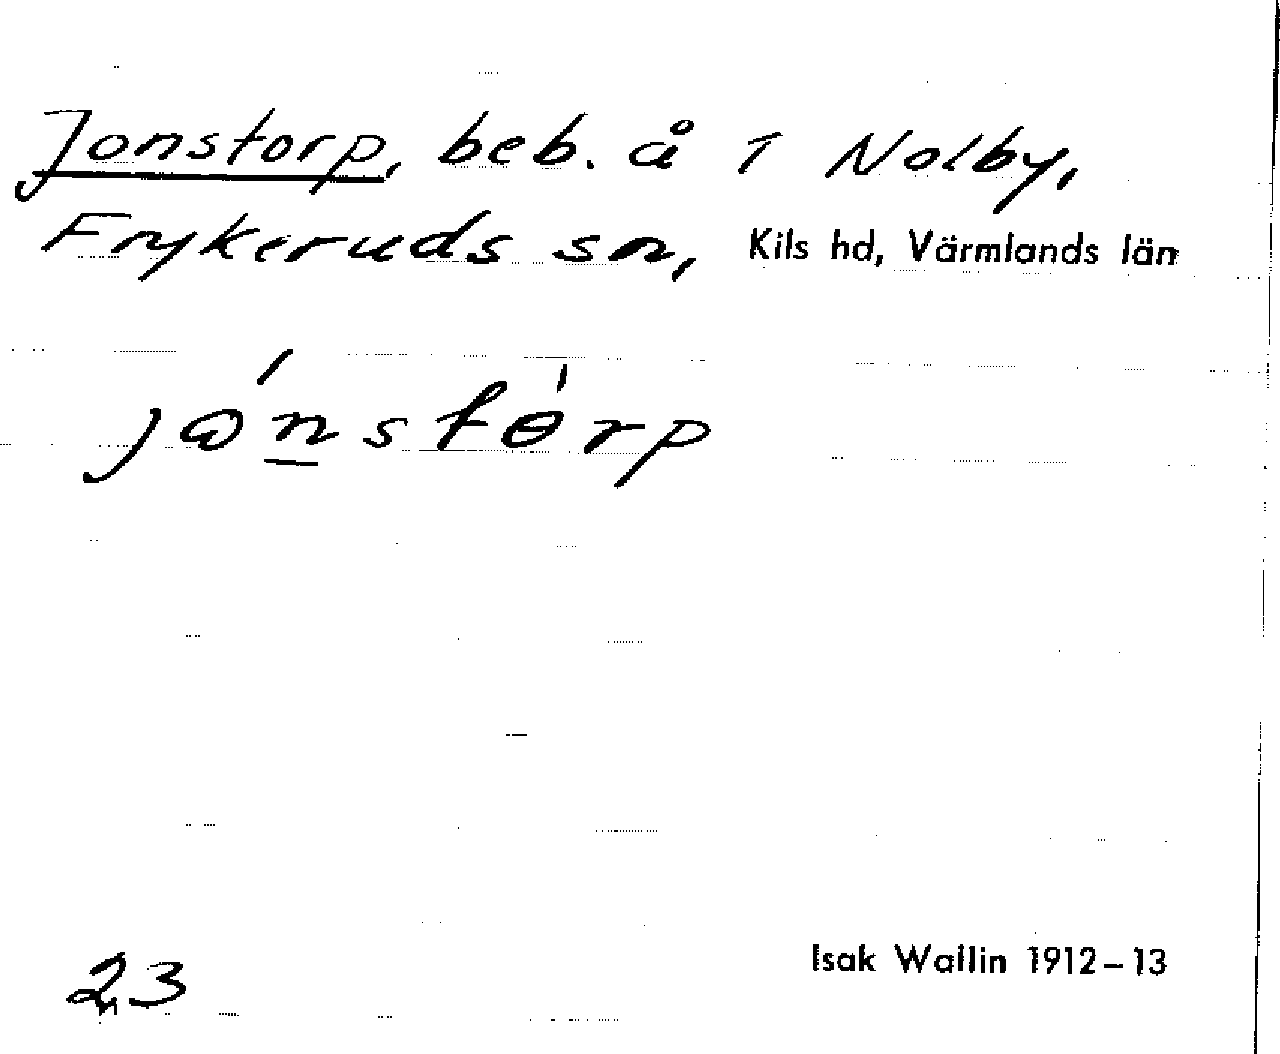 Jonstorp, beb. å 1 Nolby,
Frykeruds sn, Kils hd, Värmlands län
jɷ́n̲stɵ̍rp
23
Isak Wallin 1912–13